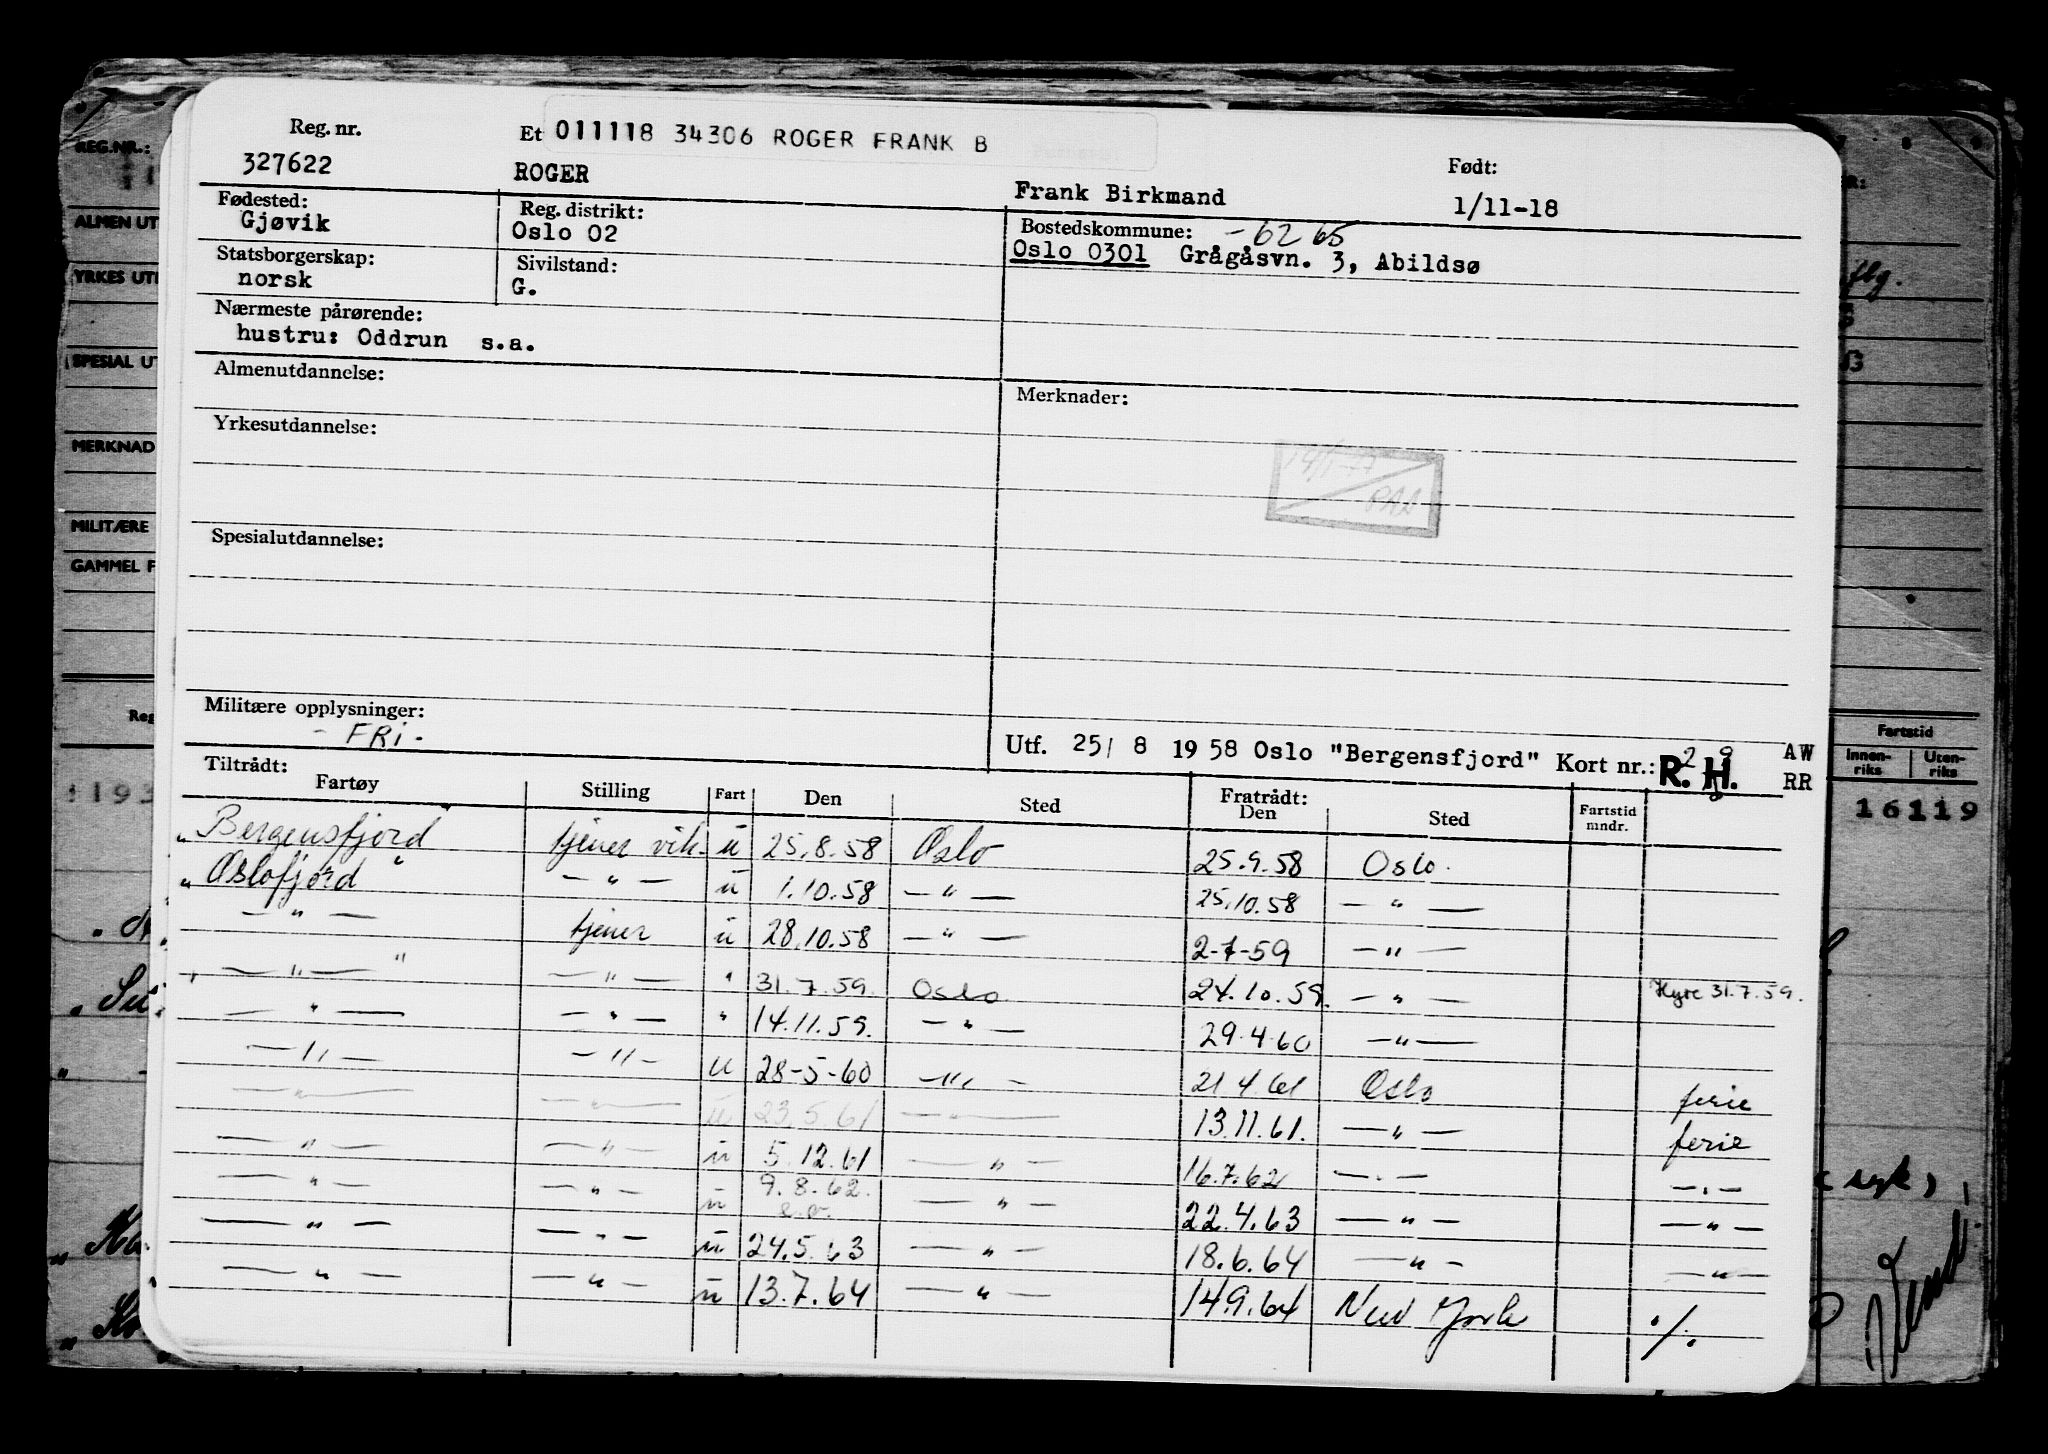 Reg. nr.
Et 011118 34306 ROGER FRANK B
327622 ROGER Frank Birkmand
Født:
1/11-18
Fødested:
Gjøvik
Reg. distrikt:
Oslo 02
Bostedskommune: -62 65
Oslo 0301 Grågåsvn. 3, Abildsø
Statsborgerskap:
norsk
Sivilstand:
G.
Nærmeste pårørende:
hustru: Oddrun s.a.
Almenutdannelse:
Merknader:
Yrkesutdannelse:
PAN
Spesialutdannelse:
Militære opplysninger:
- FRi -
Utf. 25/ 8 1958 Oslo "Bergensfjord" Kort nr.: R. H. AW
RR
Tiltrådt:
Fartøy Stilling Fart Den Sted Fratrådt: Den Sted Fartstid mndr.
" Bergensfjord " tjener vik. u 25.8.58 Oslo 25.9.58 Oslo.
" Oslofjord " — " — u 1.10.58 — " — 25.10.58 — " —
— " — tjener u 28.10.58 — " — 2-7-59 — " —
" — " — " — " — " 31.7.59. Oslo 24.10.59. — " — Hyre 31.7.59.
— " — — " — " 14.11.59. — " — 29.4.60 — " —
— " — — " — u 28-5-60 — " — 21.4.61 Oslo ferie
— " — — " — u 23.5.61 — " — 13.11.61. — " — ferie
— " — — " — u 5.12.61 — " — 16.7.62 — " — — " —
— " — — " — u 9.8.62. — " — 22.4.63 — " — — " —
— " — — " — u 24.5.63 — " — 18.6.64 — " — — " —
— " — — " — u 13.7.64 — " — 14.9.64 New York ./.
REG.NR.:
ALMEN UT
YRKES UT
SPESIAL UT
MERKNAD
MILITÆRE
GAMMEL F
Reg
193
Fartstid
Innen-riks Uten-riks
16119